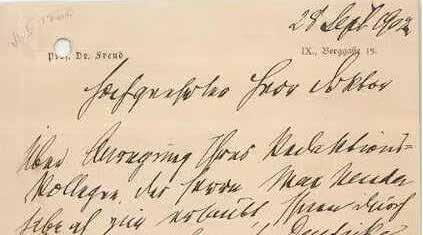 28 Sept 1902
Prof. Dr. Freud
IX., Berggaße 19.
Hochgeehrter Herr Doktor
Über Anregung Ihres Redaktions-
Kollegen, des Herrn Max
habe ich mir erlaubt, Ihnen durch